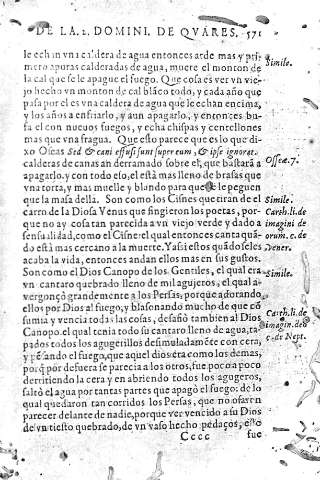 DE LA.1. DOMINI. DE QVARES. 571
le echã en vna caldera de agua entonces arde mas y pri-
mero apuras calderadas de agua, muere el monton de
la cal que se le apague el fuego. Que cosa es ver vn vie-
jo hecho vn monton de cal blãco todo, y cada año que
passa por el es vna caldera de agua que le echan encima,
y los años a enfriarlo, y aun apagarlo, y entonces bu-
fa el con nueuos fuegos, y echa chispas y centellones
mas que vna fragua. Que esso parece que es lo que di-
xo Oseas Sed & cani effusi sunt super eum, & ipse ignorat.
calderas de canas an derramado sobre el, que bastará a
apagarlo, y con todo eso, el está mas lleno de brasas que
vna torta, y mas muelle y blando para que le peguen
que la masa della. Son como los Cisnes que tiran de el
carro de la Diosa Venus que fingieron los poetas, por-
que no ay cosa tan parecida a vn viejo verde y dado a
sensualidad, como el Cisne el qual entonces canta quã-
do está mas cercano a la muerte. Y assi estos quãdo seles
acaba la vida, entonces andan ellos mas en sus gustos.
Son como el Dios Canopo de los Gentiles, el qual era
vn cantaro quebrado lleno de mil agujeros, el qual a-
vergonçó grandemente a los Persas, porque adorando
ellos por Dios al fuego, y blasonando mucho de que cõ
sumia y vencia todas las cosas, desafió tambien al Dios
Canopo. el qual tenia todo su cantaro lleno de agua, ta-
pados todos los agugerillos desimuladamẽte con cera,
y pẽsando el fuego, que aquel dios era como los demas,
porq̃ por defuera se parecia a los otros, fue poco a poco
derritiendo la cera y en abriendo todos los agugeros,
saltó el agua por tantas partes que apagó el fuego: de lo
qual quedaron tan corridos los Persas, que no osaron
parecer delante de nadie, porque ver vencido a su Dios
de vn tiesto quebrado, de vn vaso hecho pedaços, esso
Cccc fue
Simile.
Oseæ. 7.
Simile.
Carth. li. de
imagini de
orum. c. de
Vener.
Simile.
Carth. li. de
imagin. deo
c. de Nept.